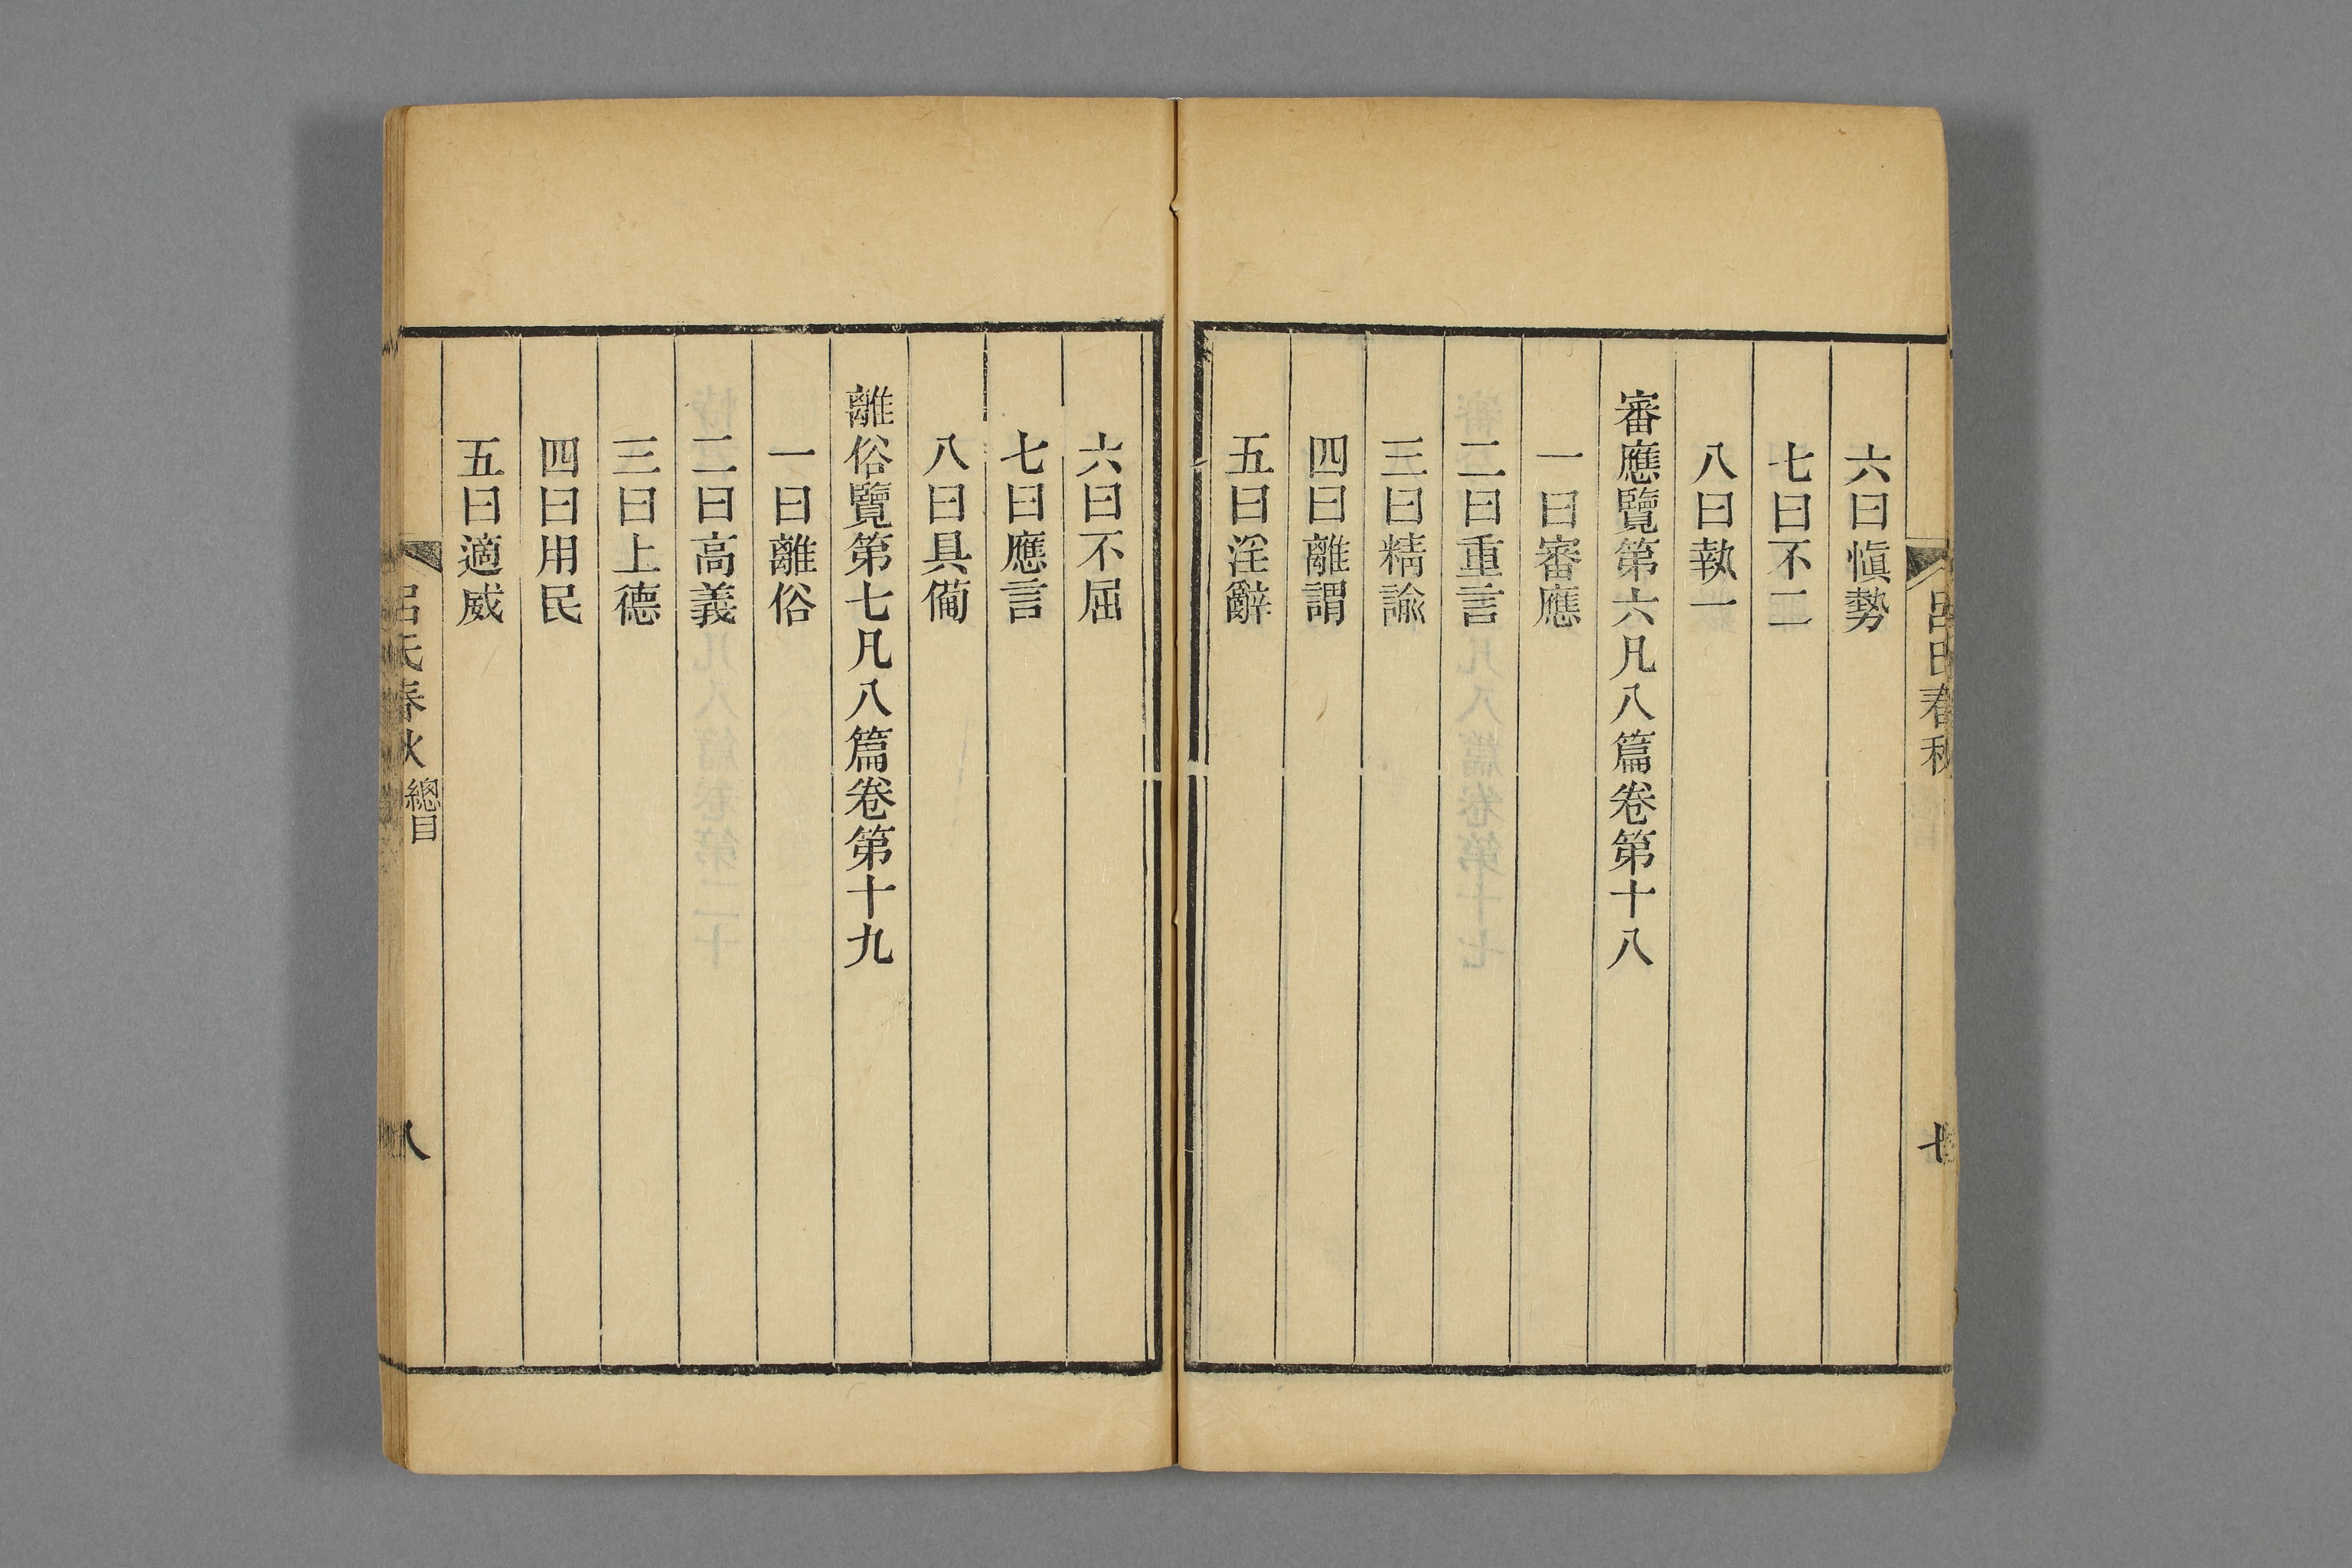 呂氏春秋
七
六曰愼勢
七曰不二
八曰執一
審應覽第六凡八篇卷第十八
一曰審應
二曰重言
三曰精諭
四曰離謂
五曰淫辭
六曰不屈
七曰應言
八曰具備
離俗覽第七凡八篇卷第十九
一曰離俗
二曰高義
三曰上德
四曰用民
五曰適威
呂氏春秋 總目
八